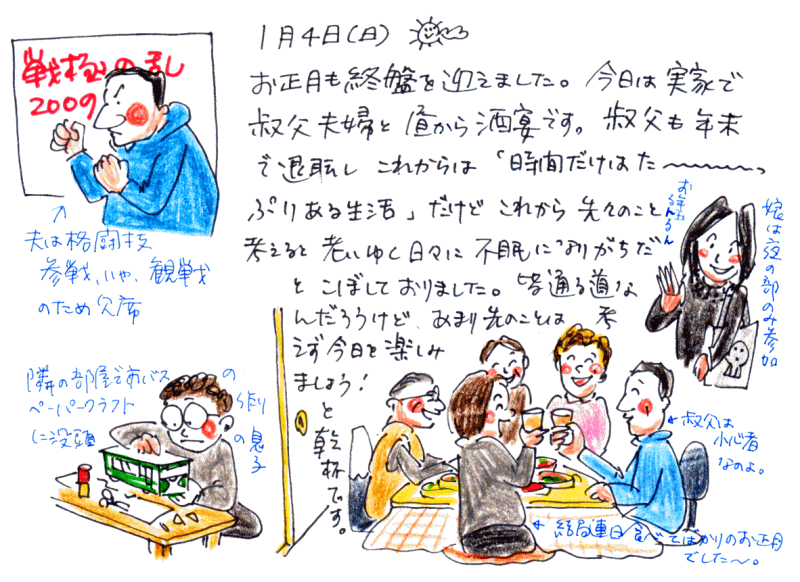 1月4日(日)
お正月も終盤を迎えました。今日は実家で
叔父夫婦と昼から酒宴です。叔父も年末
で退職し これからは「時間だけはた〜〜〜っ
ぷりある生活」だけど これから 先々のこと
考えると 老いゆく日々に 不眠になりがちだ
と こぼしておりました。皆通る道な
んだろうけど、あまり先のことは 考
えず今日を楽しみ
ましょう!
と 乾杯です。
戦極の乱
2009
夫は格闘技
参戦、いや、観戦
のため欠席
お年玉
るんるん
娘は夜の部のみ参加
隣の部屋で
ペーパークラフト
の作り
に没頭
の息子
叔父は
小心者
なのよ。
結局連日食べてばかりのお正月
でした〜。